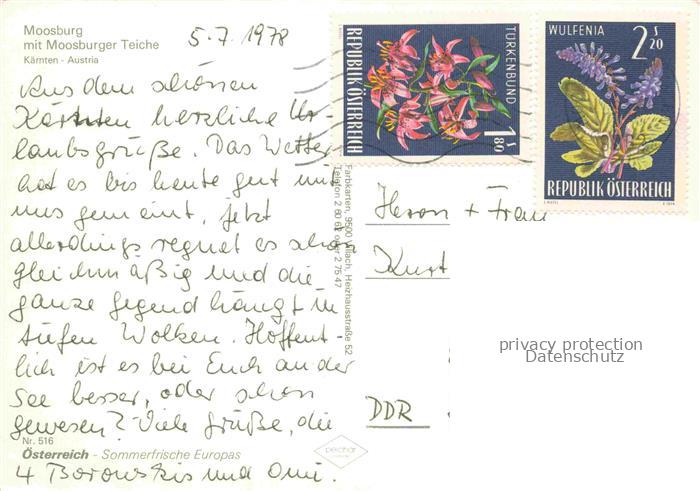 Moosburg
mit Moosburger Teiche
Kärnten - Austria
5.7.1978
Aus dem schönen
Kärnten herzliche Ur-
laubsgrüße. Das Wetter
hat es bis heute gut mit
uns gemeint, jetzt
allerdings regnet es schon
gleichmäßig und die
ganze Gegend hängt in
tiefen Wolken. Hoffent-
lich ist es bei Euch an der
See besser, oder schon
gewesen? Viele Grüße, die
Nr. 516
Österreich - Sommerfrische Europas
4 Borowskis und Omi.
Farbkarten, 9500 Villach, Heizhausstraße 52
Telefon 2 80 62 oder 2 75 47
REPUBLIK ÖSTERREICH
TÜRKENBUND
1 S 80
WULFENIA
2 S 20
REPUBLIK ÖSTERREICH
Herrn + Frau
Kurt
privacy protection
Datenschutz
DDR